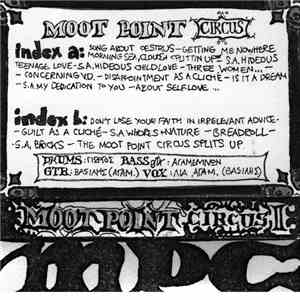 MOOT POINT CIRCUS
index a: SONG ABOUT OESTRUS - GETTING ME NOWHERE
MORNING SEA, CLOUDY (PUTTIN UP - S.A. HIDEOUS
TEENAGE LOVE - S.A. HIDEOUS CHILD LOVE - THREE WOMEN... -
- CONCERNING V.D. - DISAPPOINTMENT AS A CLICHÉ - IS IT A DREAM
- S.A. MY DEDICATION TO YOU - ABOUT SELF LOVE...
index b: DON'T LOSE YOUR FAITH IN IRRELEVANT ADVICE -
- GUILT AS A CLICHÉ - S.A. WHORE'S NATURE - BREADROLL -
- S.A. BRICKS - THE MOOT POINT CIRCUS SPLITS UP
DRUMS: BASS GTR: AGAMEMNON
GTR: BASIANS (AGAM.) VOX: AGAM. (BASIANS)
MOOT POINT CIRCUS II
MPC